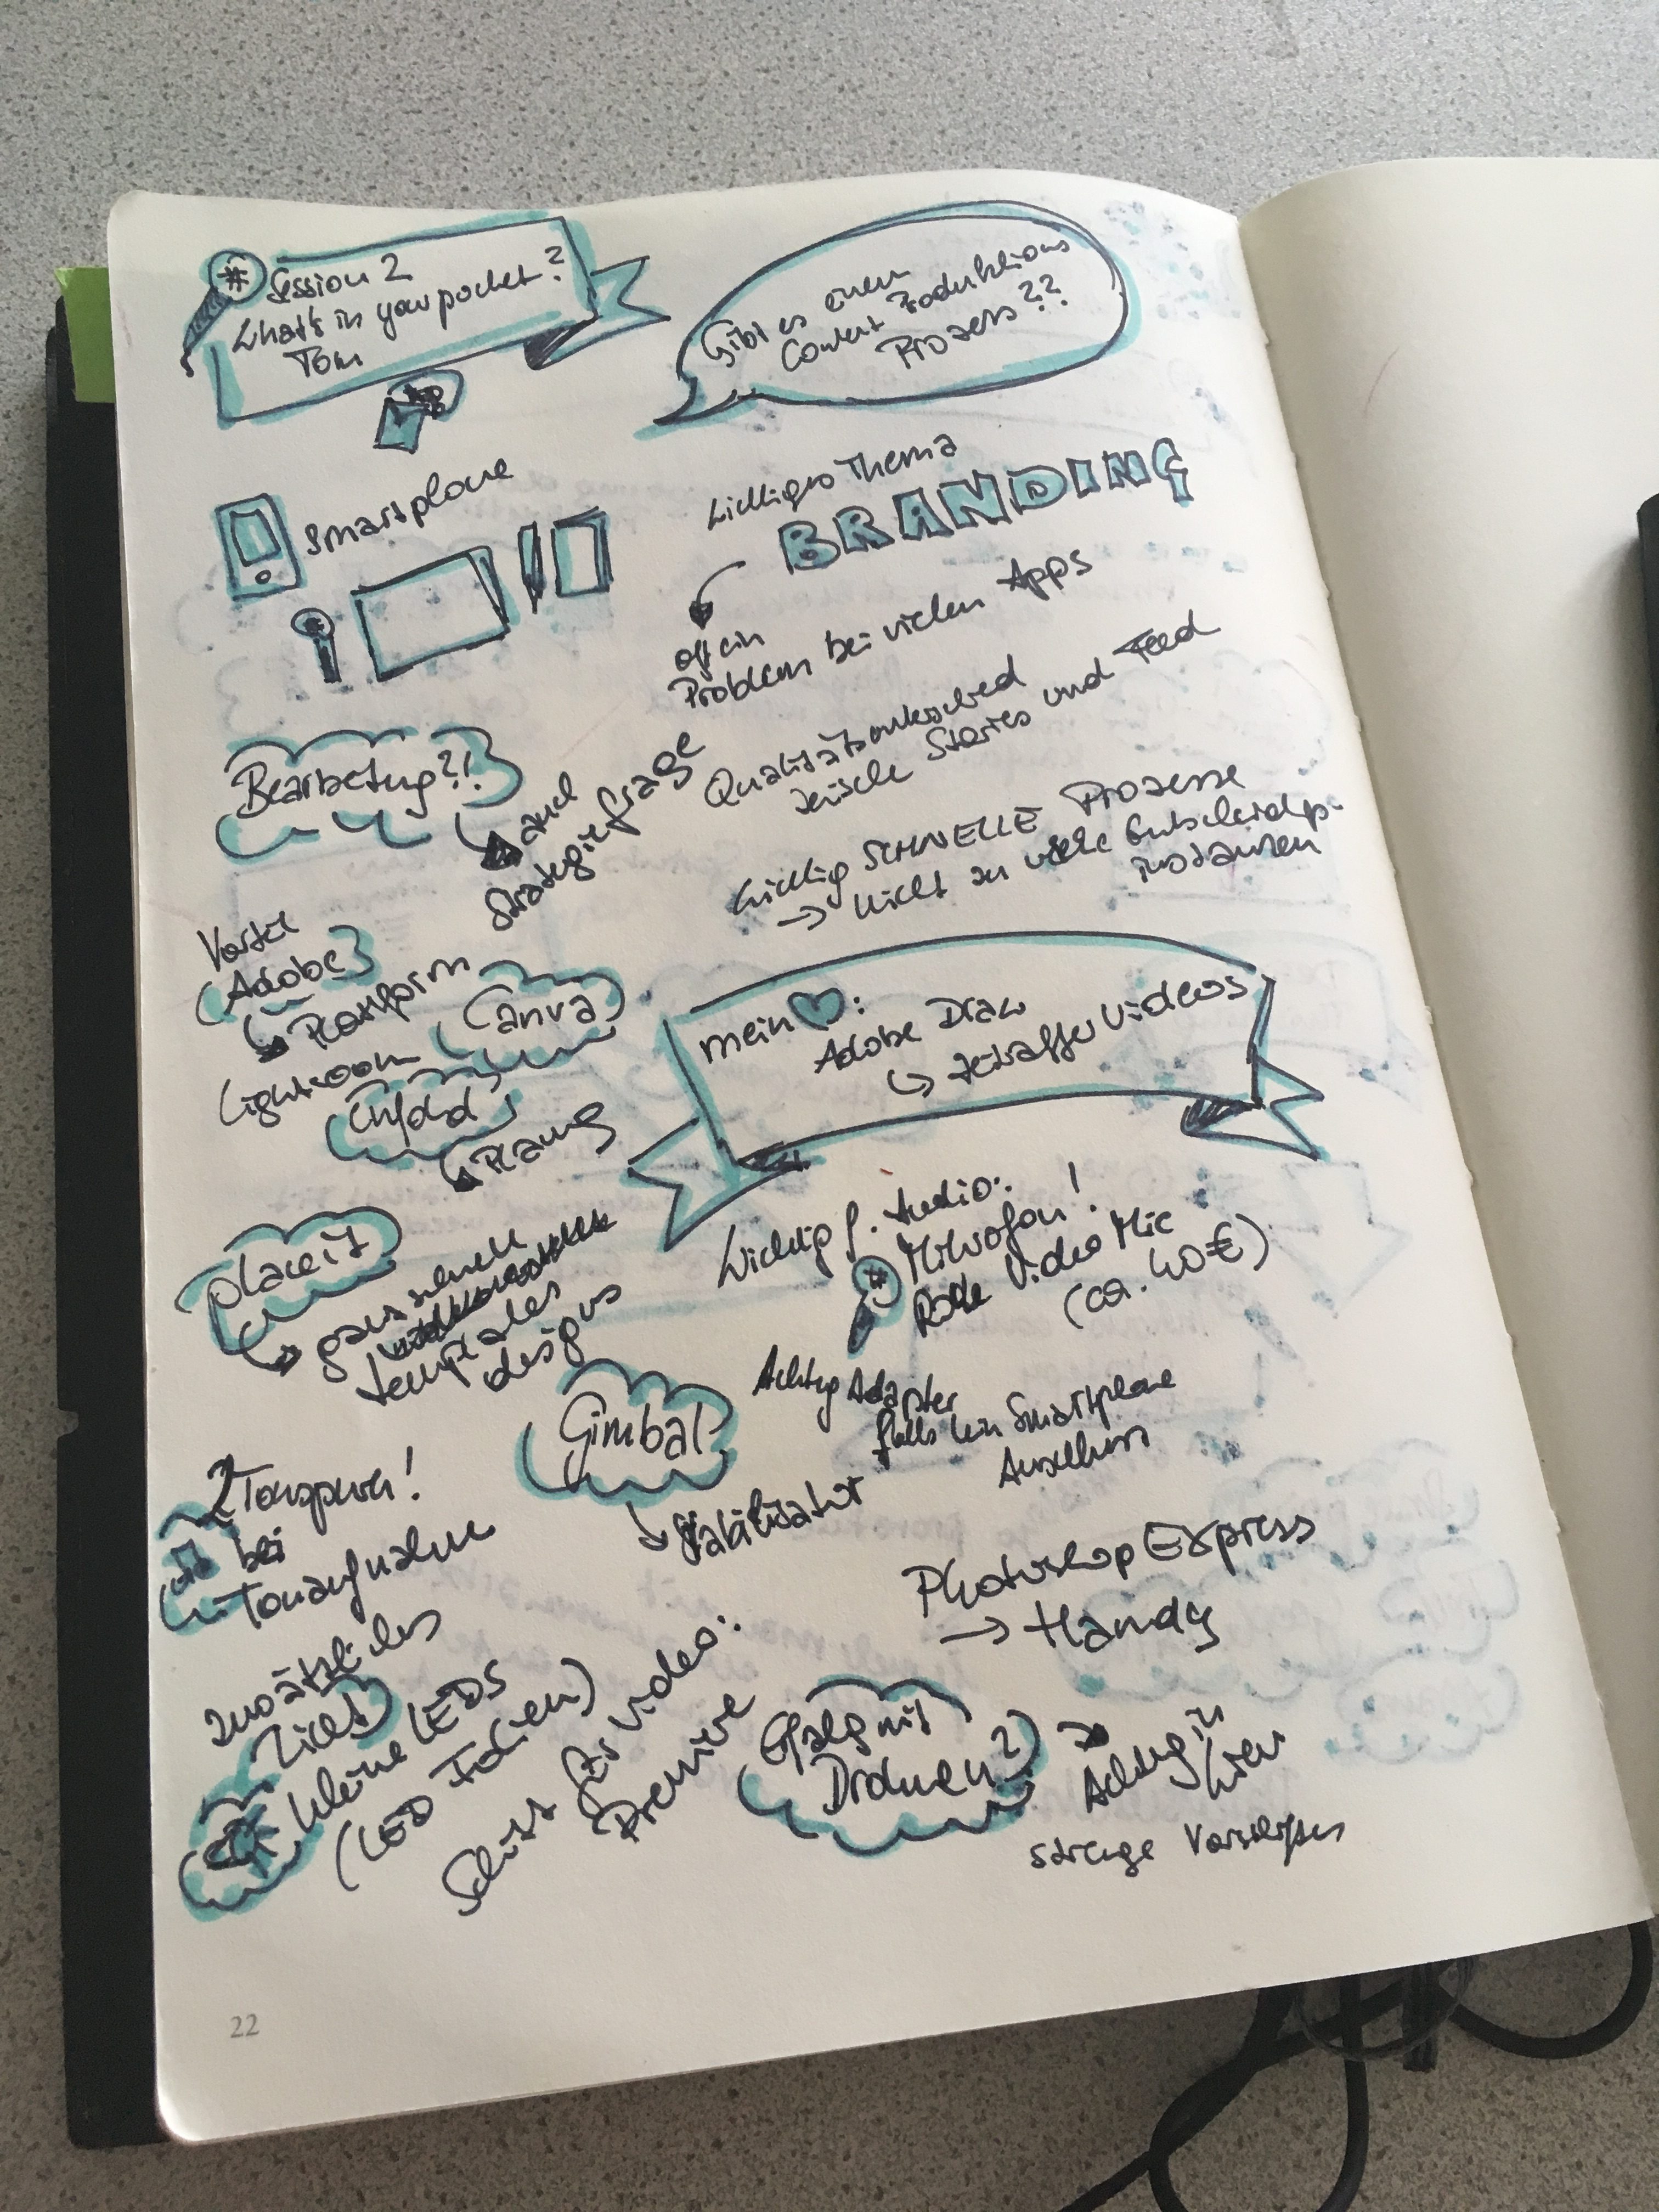 # Session 2
What's in your pocket?
Tom
Gibt es einen
Content Produktions
Prozess??
Smartphone
Wichtiges Thema
BRANDING
oft ein
Problem bei vielen Apps
Qualitätsunterschied
zwische Stories und Feed
Bearbeitung?!
auch
Strategiefrage
Wichtig SCHNELLE Prozesse
→ nicht zu viele Entscheidgs-
instanzen
Vorteil
Adobe
Plattform
Lightroom
Canva
Unfold
Planung
mein ♥:
Adobe Draw
Zeitraffer Videos
placeit
ganz schnell
templates
designs
Wichtig f. Audio:
# Mikrofon!
Rode Video Mic
(ca. 40€)
Achtung Adapter
falls kein Smartphone
Anschluss
Gimbal
Stabilisator
2 Tonspuren!
bei
Tonaufnahme
Photoshop Express
→ Handy
zusätzliches
Licht
kleine LEDS
(LED Folien)
Schnitt für Video:
Premiere
Erfahrg mit
Drohnen?
Achtung in
Wien
strenge Vorschriften
22